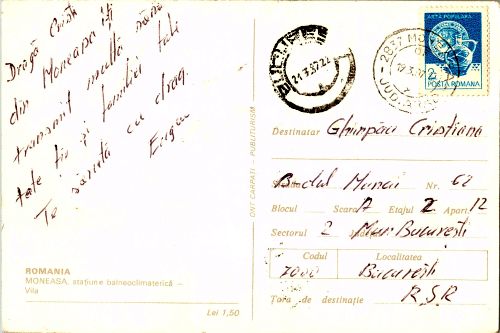 Dragă Cristi
din Moneasa îți
transmit multă sănă
tate ție și familiei tale
Te sărută cu drag.
Eugen
ROMANIA
MONEASA, stațiune balneoclimaterică –
Vila
Lei 1,50
ONT CARPAȚI – PUBLITURISM
BUCUREȘTI
21.3.87.22
2837 MONEASA
19.3.87
JUD. ARAD
ARTA POPULARA
2L
POSTA ROMANA
Destinatar Ghimpău Cristiana
B-dul Muncii Nr. 62
Blocul Scara A Etajul 2 Apart. 12
Sectorul 2 Mun București
Codul Localitatea
7000 București
Țara de destinație R.S.R